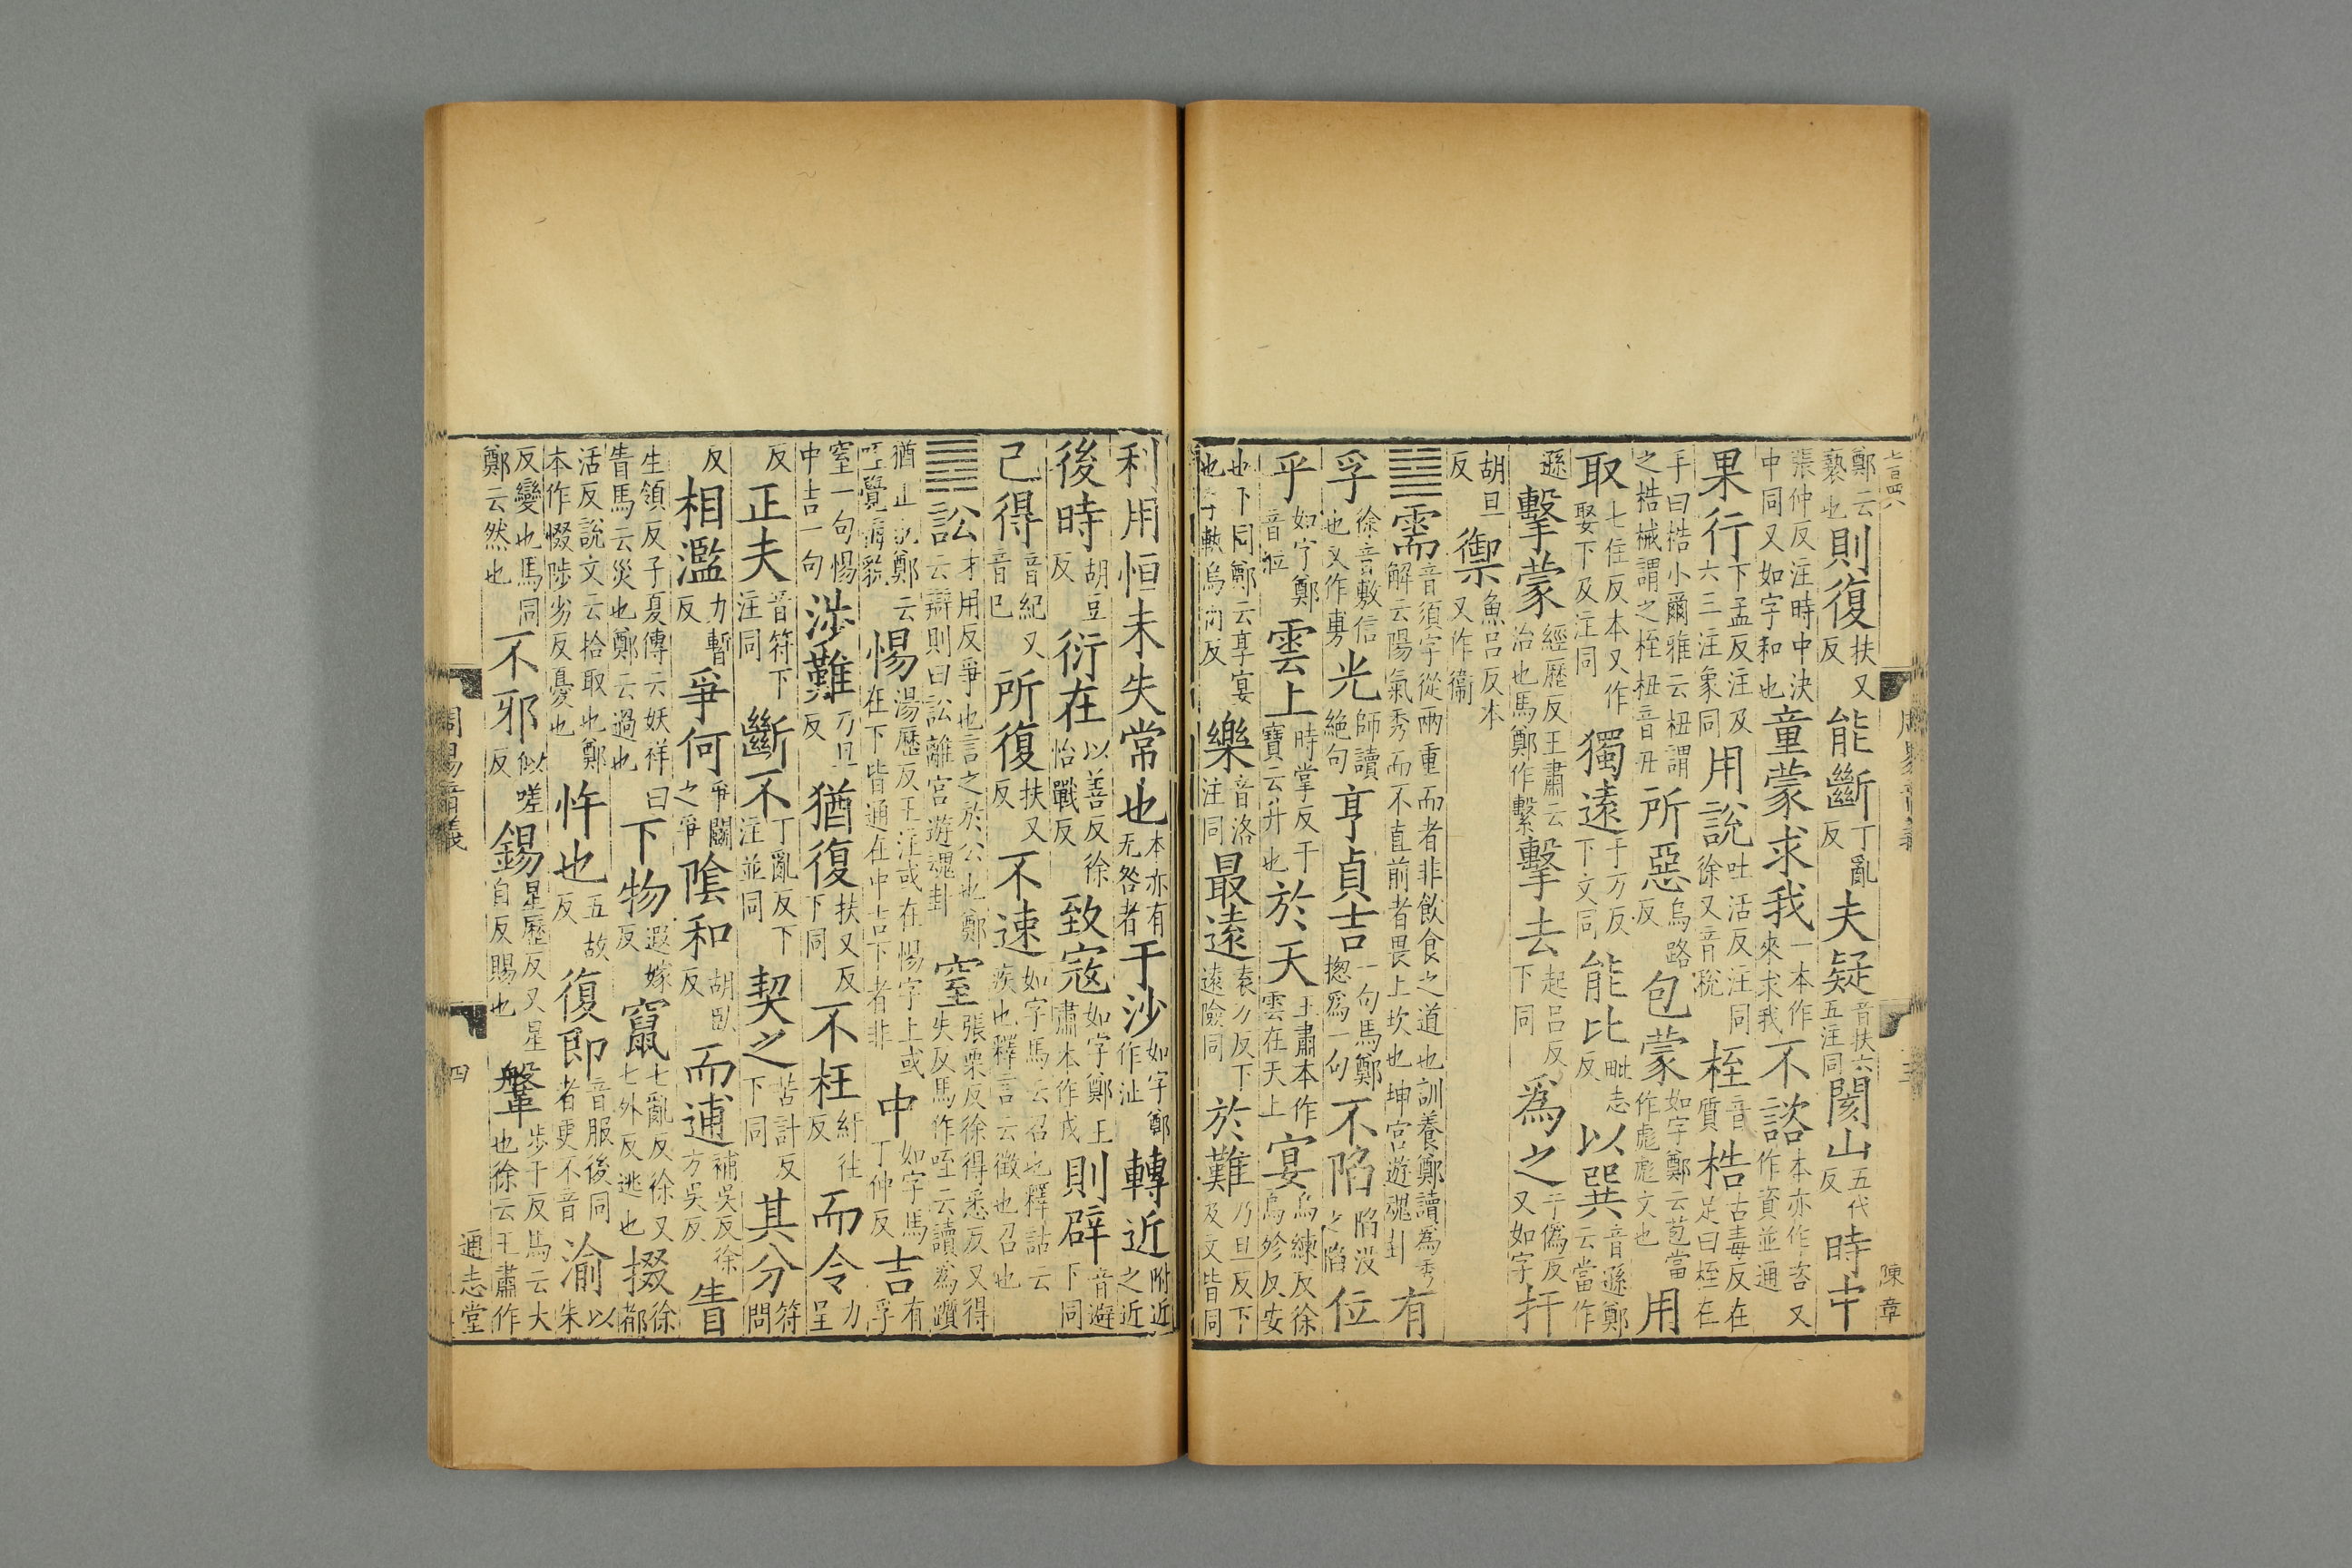 鄭云褻也則復扶又反能斷丁亂反夫疑音扶六五注同閡山五代反時中
張仲反注時中決中同又如字和也童蒙求我一本作來求我不諮本亦作咨又作資並通
果行下孟反注及六三注象同用說吐活反注同徐又音稅桎音質梏古毒反在足曰桎在
手曰梏小爾雅云杻謂之梏械謂之桎杻音丑所惡烏路反包蒙如字鄭云苞當作彪彪文也用
取七住反本又作娶下及注同獨遠于万反下文同能比毗志反以巽音遜鄭云當作
遜擊蒙經歷反王肅云治也馬鄭作繫擊去起呂反下同爲之于偽反又如字扞
胡旦反禦魚呂反本又作衞
䷄需音須字從兩重而者非飲食之道也訓養鄭讀爲秀解云陽氣秀而不直前者畏上坎也坤宮遊魂卦有
孚徐音敷信也又作旉光師讀絕句亨貞吉一句馬鄭摠爲一句不陷陷沒之陷位
乎如字鄭音莅雲上時掌反干寶云升也於天王肅本作雲在天上宴烏練反徐烏殄反安
也下同鄭云享宴也李軌烏衎反樂音洛注同最遠袁万反下遠險同於難乃旦反下及文皆同
周易音義 三 陳章
利用恒未失常也本亦有无咎者于沙如字鄭作沚轉近附近之近
後時胡豆反衍在以善反徐怡戰反致寇如字鄭王肅本作戎則辟音避下同
已得音紀又音巳所復扶又反不速如字馬云召也釋詁云疾也釋言云徵也召也
䷅訟才用反爭也言之於公也鄭云辯則曰訟離宮遊魂卦窒張栗反徐得悉反又得失反馬作咥云讀爲躓
猶止也鄭云咥覺悔貌惕湯歷反王注或在惕字上或在下皆通在中吉下者非中如字馬丁仲反吉有孚
窒一句惕中吉一句涉難乃旦反猶復扶又反下同不枉紆往反而令力呈
反正夫音符下注同斷不丁亂反下注並同契之苦計反下同其分符問
反相濫力暫反爭何爭鬭之爭陰和胡臥反而逋補吳反徐方吳反眚
生領反子夏傳云妖祥曰眚馬云災也鄭云過也下物遐嫁反竄七亂反徐又七外反逃也掇徐都
活反說文云拾取也鄭本作惙陟劣反憂也忤也五故反復即音服後同者更不音渝以朱
反變也馬同鄭云然也不邪似嗟反錫星歷反又星自反賜也鞶步干反馬云大也徐云王肅作
周易音義 四 通志堂